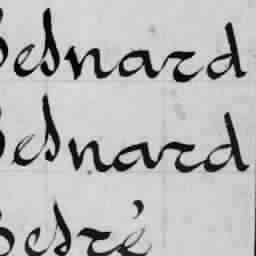 Besnard
Besnard
Besré